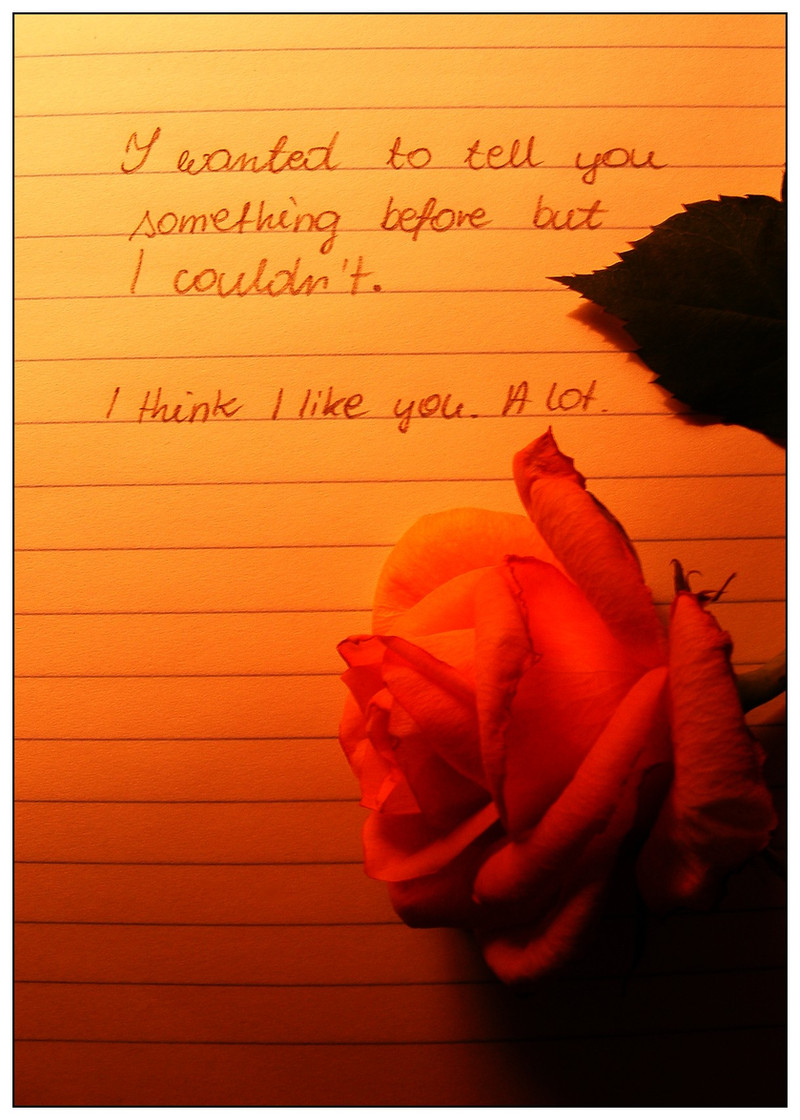 I wanted to tell you
something before but
I couldn't.
I think I like you. A lot.